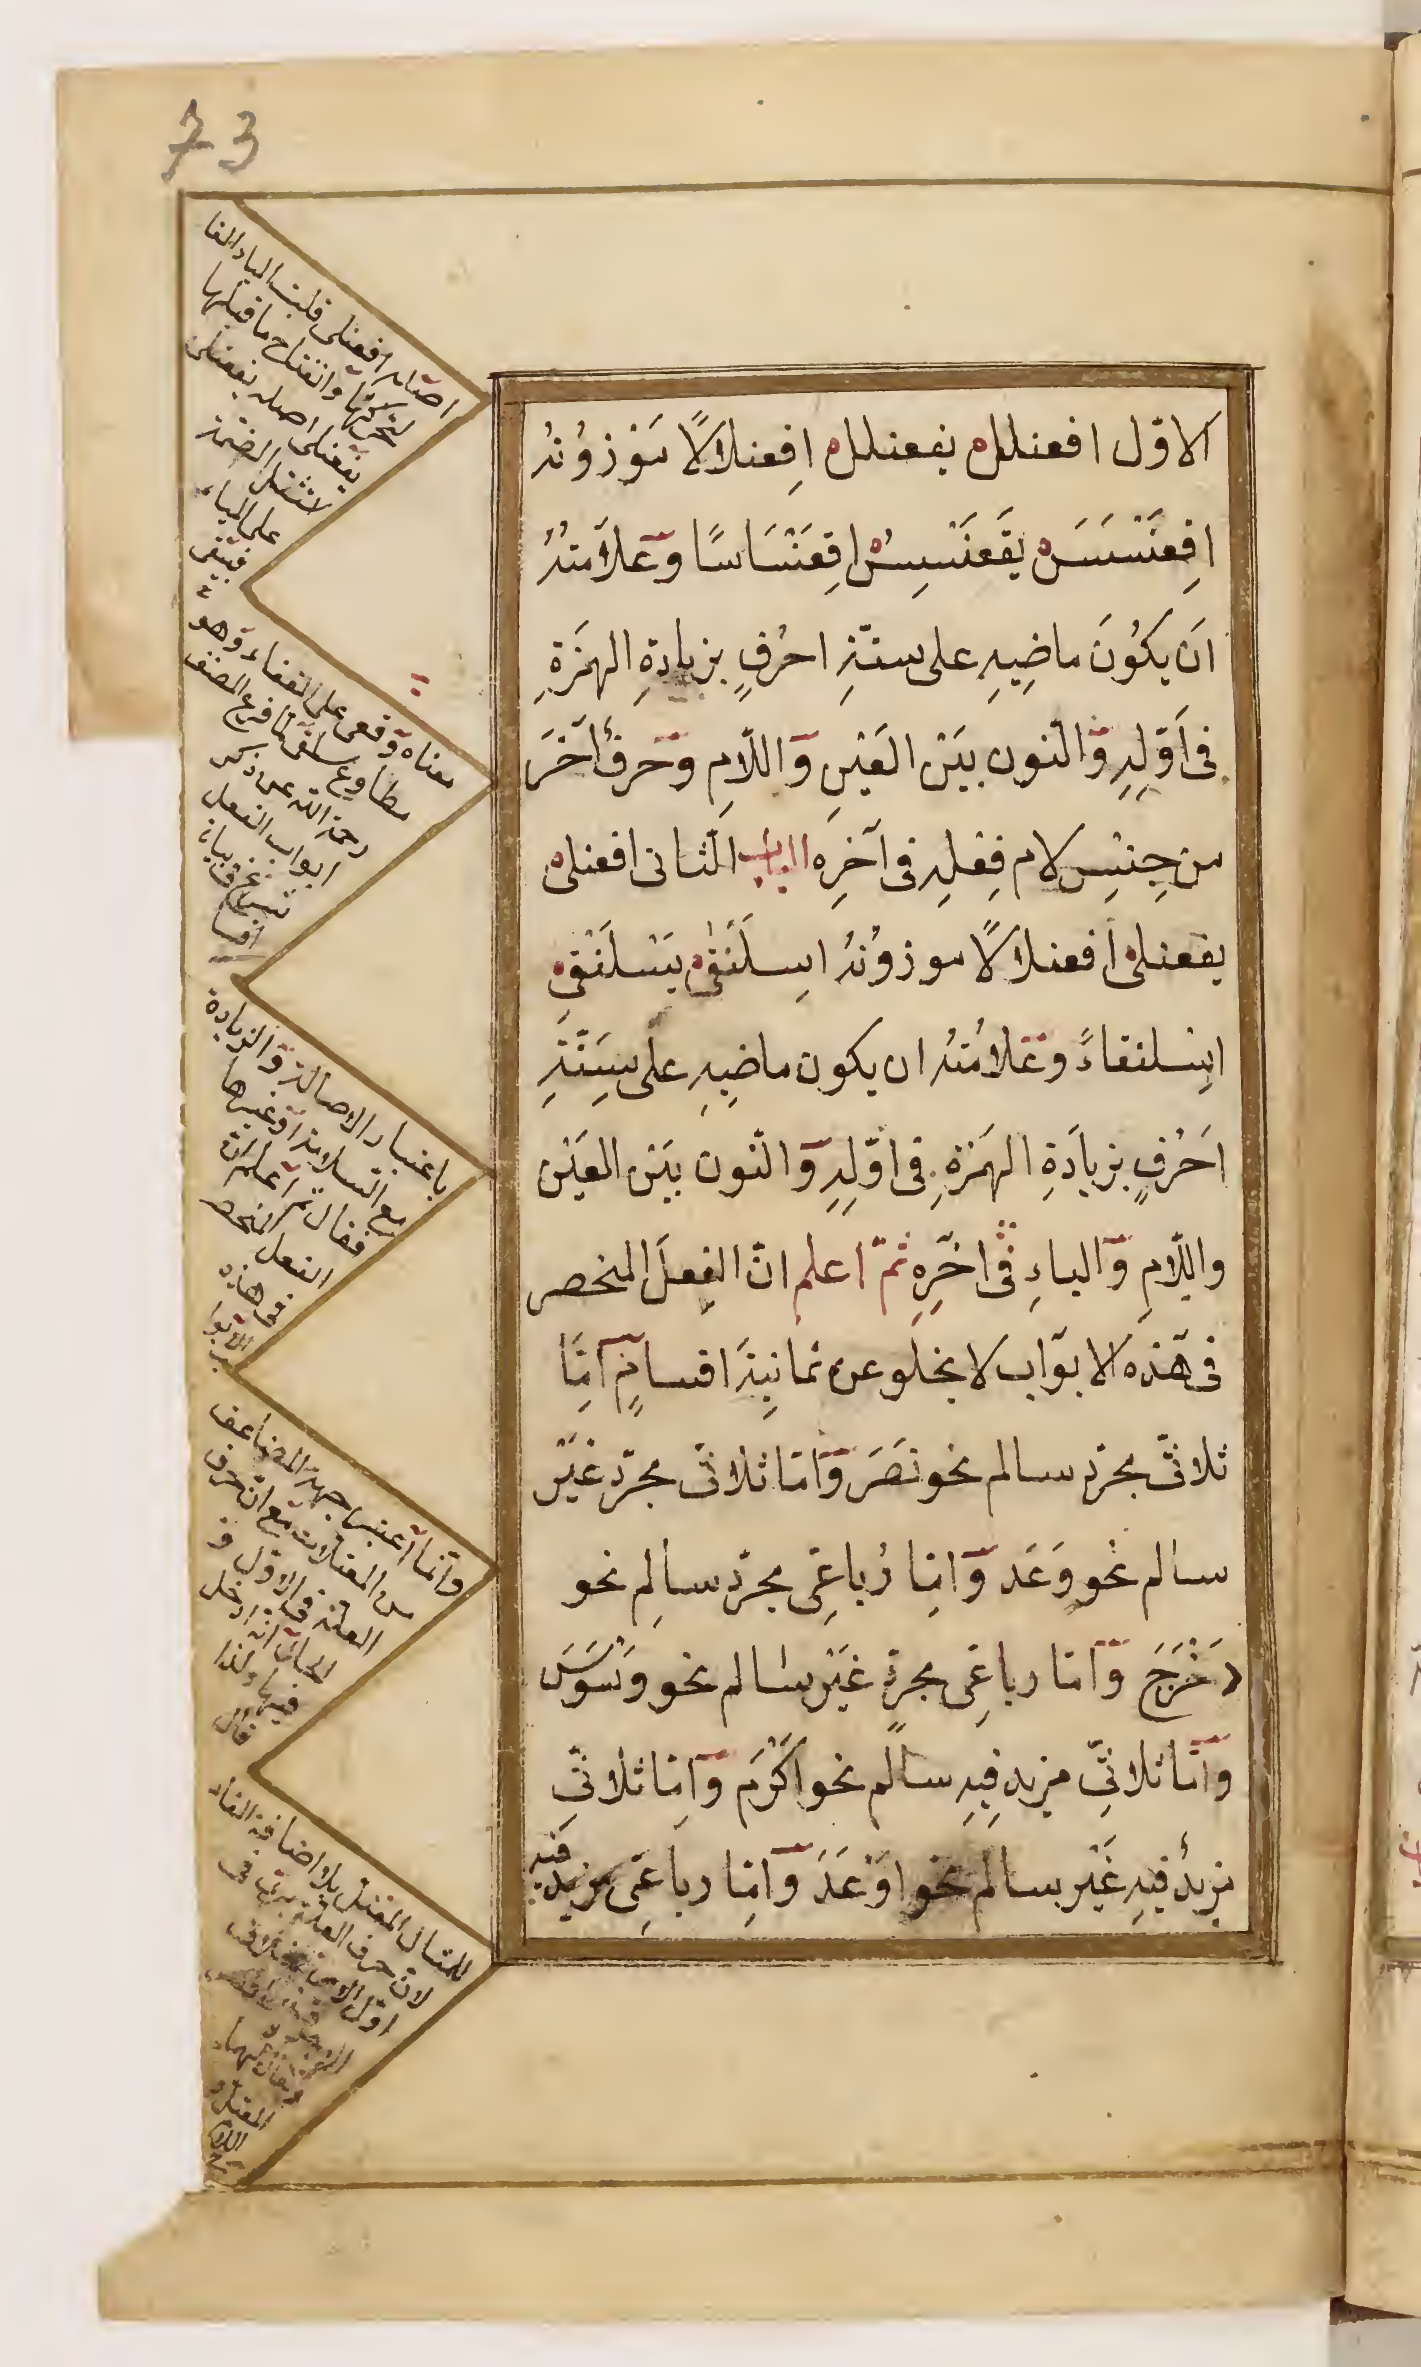 73
الاوّل افعنلل يفعنلل اِفعنلالًا مَوْزوُنُهُ
اِقعَنْسَسَ يَقَعَنْسِسُ اِقعَنْسَاسًا وَعَلاَمتُهُ
اَن يَكوُنَ ماضِيهِ على ستّةِ احرُفٍ بزيادةِ الهمَزَةِ
فى اَوّلِهِ وَالنون بيَن العَيْنِ وَاللاّمِ وَحَرفٌ آخَرَ
من جِنسِ لام فِعْلِهِ فى آخَرِه الباب الثانى افعنلى
يفعنلى اِفعنلالًا موزوُنُهُ اِسلَنْقٰى يَسْلَنْقِى
اِسْلنقاءً وَعَلامُتهُ ان يكون ماضِيهِ علَى سِتَّةِ
اَحَرُفٍ بزيادَةِ الهمَزةِ فى اوّلِهِ وَالنّون بيَن العَيْن
واللّامِ وَالياءِ فى اخَرِهِ ثمّ اعلم انّ الفِعلَ المنخصر
فى هَذه الابوَاب لا يخلو عن ثمانِيةَ اقسامٍ اِمّا
ثلاثىّ مجرّد سالم نحو نصَرَ وَامّا ثلاثىّ مجرّد غيَرْ
سالم نحو وَعَد وَاِمّا رُباعِى مجرّد سالِم نحو
دَحْرَجَ وَامّا رباعِى مجرّدٍ غيَر سالم نحو وَسْوَسَ
وَامّا ثلاثِىّ مزيد فِيهِ سالم نحو اكَرْمَ وَاِمّا ثلاثىِّ
مزيدٌ فيهِ غَيْر سالم نحو اوَعَدَ وَاِمّا رباعِى مزيد فيه
اصله افعنلى قلبت الياء الفا
لتحركها وانفتاح ما قبلها
يفعنلى اصله يفعنلى
لاستثقال الضمة
على الياء
فبقى
معناه وقعى على القفاء وهو
مطاوع سلقى لما فرغ المصنف
رحمة الله عن ذكر
ابواب الفعل
شرع فى بيان
اقسا
باعتبار الاصالة والزيادة
مع السلامة او غيرها
فقال ثم اعلم ان
الفعل المنخصر
فى هذه
الابوا
ب
وانما اعتبر جهة المضاعف
من المعتلات مع ان حرف
العلة فى الاول
ادخل
فيها ولذا
قال
للمثال المعتل بلا اضافة الفاء
لان حرف العلة يرى فى
اول الامر بخلاف
المعتل